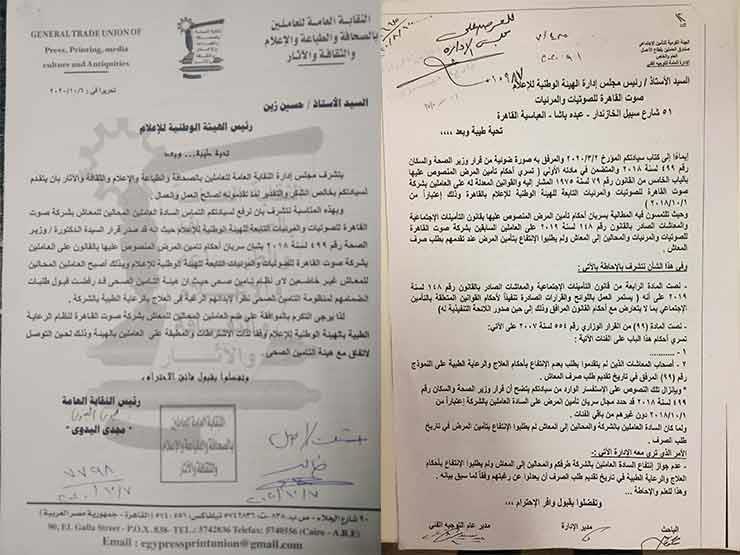 GENERAL TRADE UNION OF
Press, Printing, media
culture and Antiquities
النقابة العامة للعاملين
بالصحافة والطباعة والإعلام
والثقافة والآثار
تحريرا في : ٢٠٢٠/١٠/٦
السيد الأستاذ / حسين زين
رئيس الهيئة الوطنية للإعلام
تحية طيبة... وبعد
يتشرف مجلس إدارة النقابة العامة للعاملين بالصحافة والطباعة والإعلام والثقافة والأثار بان يتقدم
لسيادتكم بخالص الشكر والتقدير لما تقدمونه لصالح العمل والعمال .
وبهذه المناسبة نتشرف بان نرفع لسيادتكم التماس السادة العاملين المحالين للمعاش بشركة صوت
القاهرة للصوتيات والمرئيات التابعة للهيئة الوطنية للإعلام حيث انه قد صدر قرار السيدة الدكتورة / وزير
الصحة رقم ٤٩٩ لسنة ٢٠١٨ بشان سريان أحكام تأمين المرض المنصوص عليها بالقانون على العاملين
بشركة صوت القاهرة للصوتيات والمرئيات التابعة للهيئة الوطنية للإعلام وبذلك أصبح العاملين المحالين
للمعاش غير خاضعين لاى نظام تأمين صحى حيث ان هيئة التأمين الصحى قد رفضت قبول طلبات
انضمامهم لمنظومة التأمين الصحى نظراً لابدائهم الرغبة فى العلاج بالرعاية الطبية بالشركة .
لذا يرجى التكرم بالموافقة على ضم العاملين المحالين للمعاش بشركة صوت القاهرة لنظام الرعاية
الطبية بالهيئة الوطنية للإعلام وفقاً لذات الاشتراطات والمطبقة على العاملين بالهيئة وذلك لحين التوصل
لاتفاق مع هيئة التأمين الصحى.
وتفضلوا بقبول فائق الاحترام،،
رئيس النقابة العامة
" مجدى البدوى "
النقابة العامة للعاملين
بالصحافة والطباعة والإعلام
والثقافة والآثار
٧٧٩٨
٢٠٢٠/١٠/٧
٩٠ شارع الجلاء - ص.ب ٨٣٥ (القاهرة - جمهورية مصر العربية)
90, El. Galla Street - P.O.X. 838- TEL.: 3742836 Telefax: 5740556 (Cairo - A.R.E)
Email : egypressprintunion@gmail.com
الهيئة القومية للتأمين الإجتماعي
السيد الأستاذ / رئيس مجلس إدارة الهيئة الوطنية للإعلام
صوت القاهرة للصوتيات والمرئيات
٥١ شارع سبيل الخازندار - عبده باشا - العباسية القاهرة
تحية طيبة وبعد ،،،،
إيماءاً إلى كتاب سيادتكم المؤرخ ٢٠٢٠/٣/٢ والمرفق به صورة ضوئية من قرار وزير الصحة والسكان
رقم ٤٩٩ لسنة ٢٠١٨ والمتضمن في مادته الأولي ( تسري أحكام تأمين المرض المنصوص عليها
بالباب الخامس من القانون رقم ٧٩ لسنة ١٩٧٥ المشار إليه والقوانين المعدلة له على العاملين بشركة
صوت القاهرة للصوتيات والمرئيات التابعة للهيئة الوطنية للإعلام بالقاهرة وذلك إعتباراً من
٢٠١٨/١٠/١ )
وحيث تلتمسون فيه المطالبة بسريان أحكام تأمين المرض المنصوص عليها بقانون التأمينات الإجتماعية
والمعاشات الصادر بالقانون رقم ١٤٨ لسنة ٢٠١٩ على العاملين السابقين بشركة صوت القاهرة
للصوتيات والمرئيات والمحالين إلى المعاش ولم يطلبوا الإنتفاع بتأمين المرض عند تقدمهم بطلب صرف
المعاش .
وفي هذا الشأن نتشرف بالإحاطة بالآتي :
- نصت المادة الرابعة من قانون التأمينات الإجتماعية والمعاشات الصادر بالقانون رقم ١٤٨ لسنة
٢٠١٩ على أنه ( يستمر العمل باللوائح والقرارات الصادرة تنفيذاً لأحكام القوانين المتعلقة بالتأمين
الإجتماعي بما لا يتعارض مع أحكام القانون المرافق وذلك إلى حين صدور اللائحة التنفيذية له )
- نصت المادة (٩٩) من القرار الوزاري رقم ٥٥٤ لسنة ٢٠٠٧ على الآتي:
تسري أحكام هذا الباب على الفئات الآتية :
١ - ............
٢ - أصحاب المعاشات الذين لم يتقدموا بطلب بعدم الإنتفاع بأحكام العلاج والرعاية الطبية على النموذج
رقم (٩٩) المرفق في تاريخ تقديم طلب صرف المعاش .
" وبإنزال تلك النصوص على الإستفسار الوارد من سيادتكم يتضح أن قرار وزير الصحة والسكان رقم
٤٩٩ لسنة ٢٠١٨ قد حدد مجال سريان تأمين المرض على السادة العاملين بالشركة إعتباراً من
٢٠١٨/١٠/١ دون غيرهم من باقي الفئات .
ولما كان السادة العاملين بالشركة والمحالين إلى المعاش لم يطلبوا الإنتفاع بتأمين المرض في تاريخ
طلب الصرف .
الأمر الذي تري معه الإدارة الآتي :-
- عدم جواز إنتفاع السادة العاملين بالشركة طرفكم والمحالين إلى المعاش ولم يطلبوا الإنتفاع بأحكام
العلاج والرعاية الطبية في تاريخ تقديم طلب الصرف أن يعدلوا عن رغبتهم وفقاً لما سبق بيانه .
وهذا للعلم والإحاطة ...
وتفضلوا بقبول وافر الإحترام ،،،
الباحث
مدير الإدارة
مدير عام التوجيه الفني